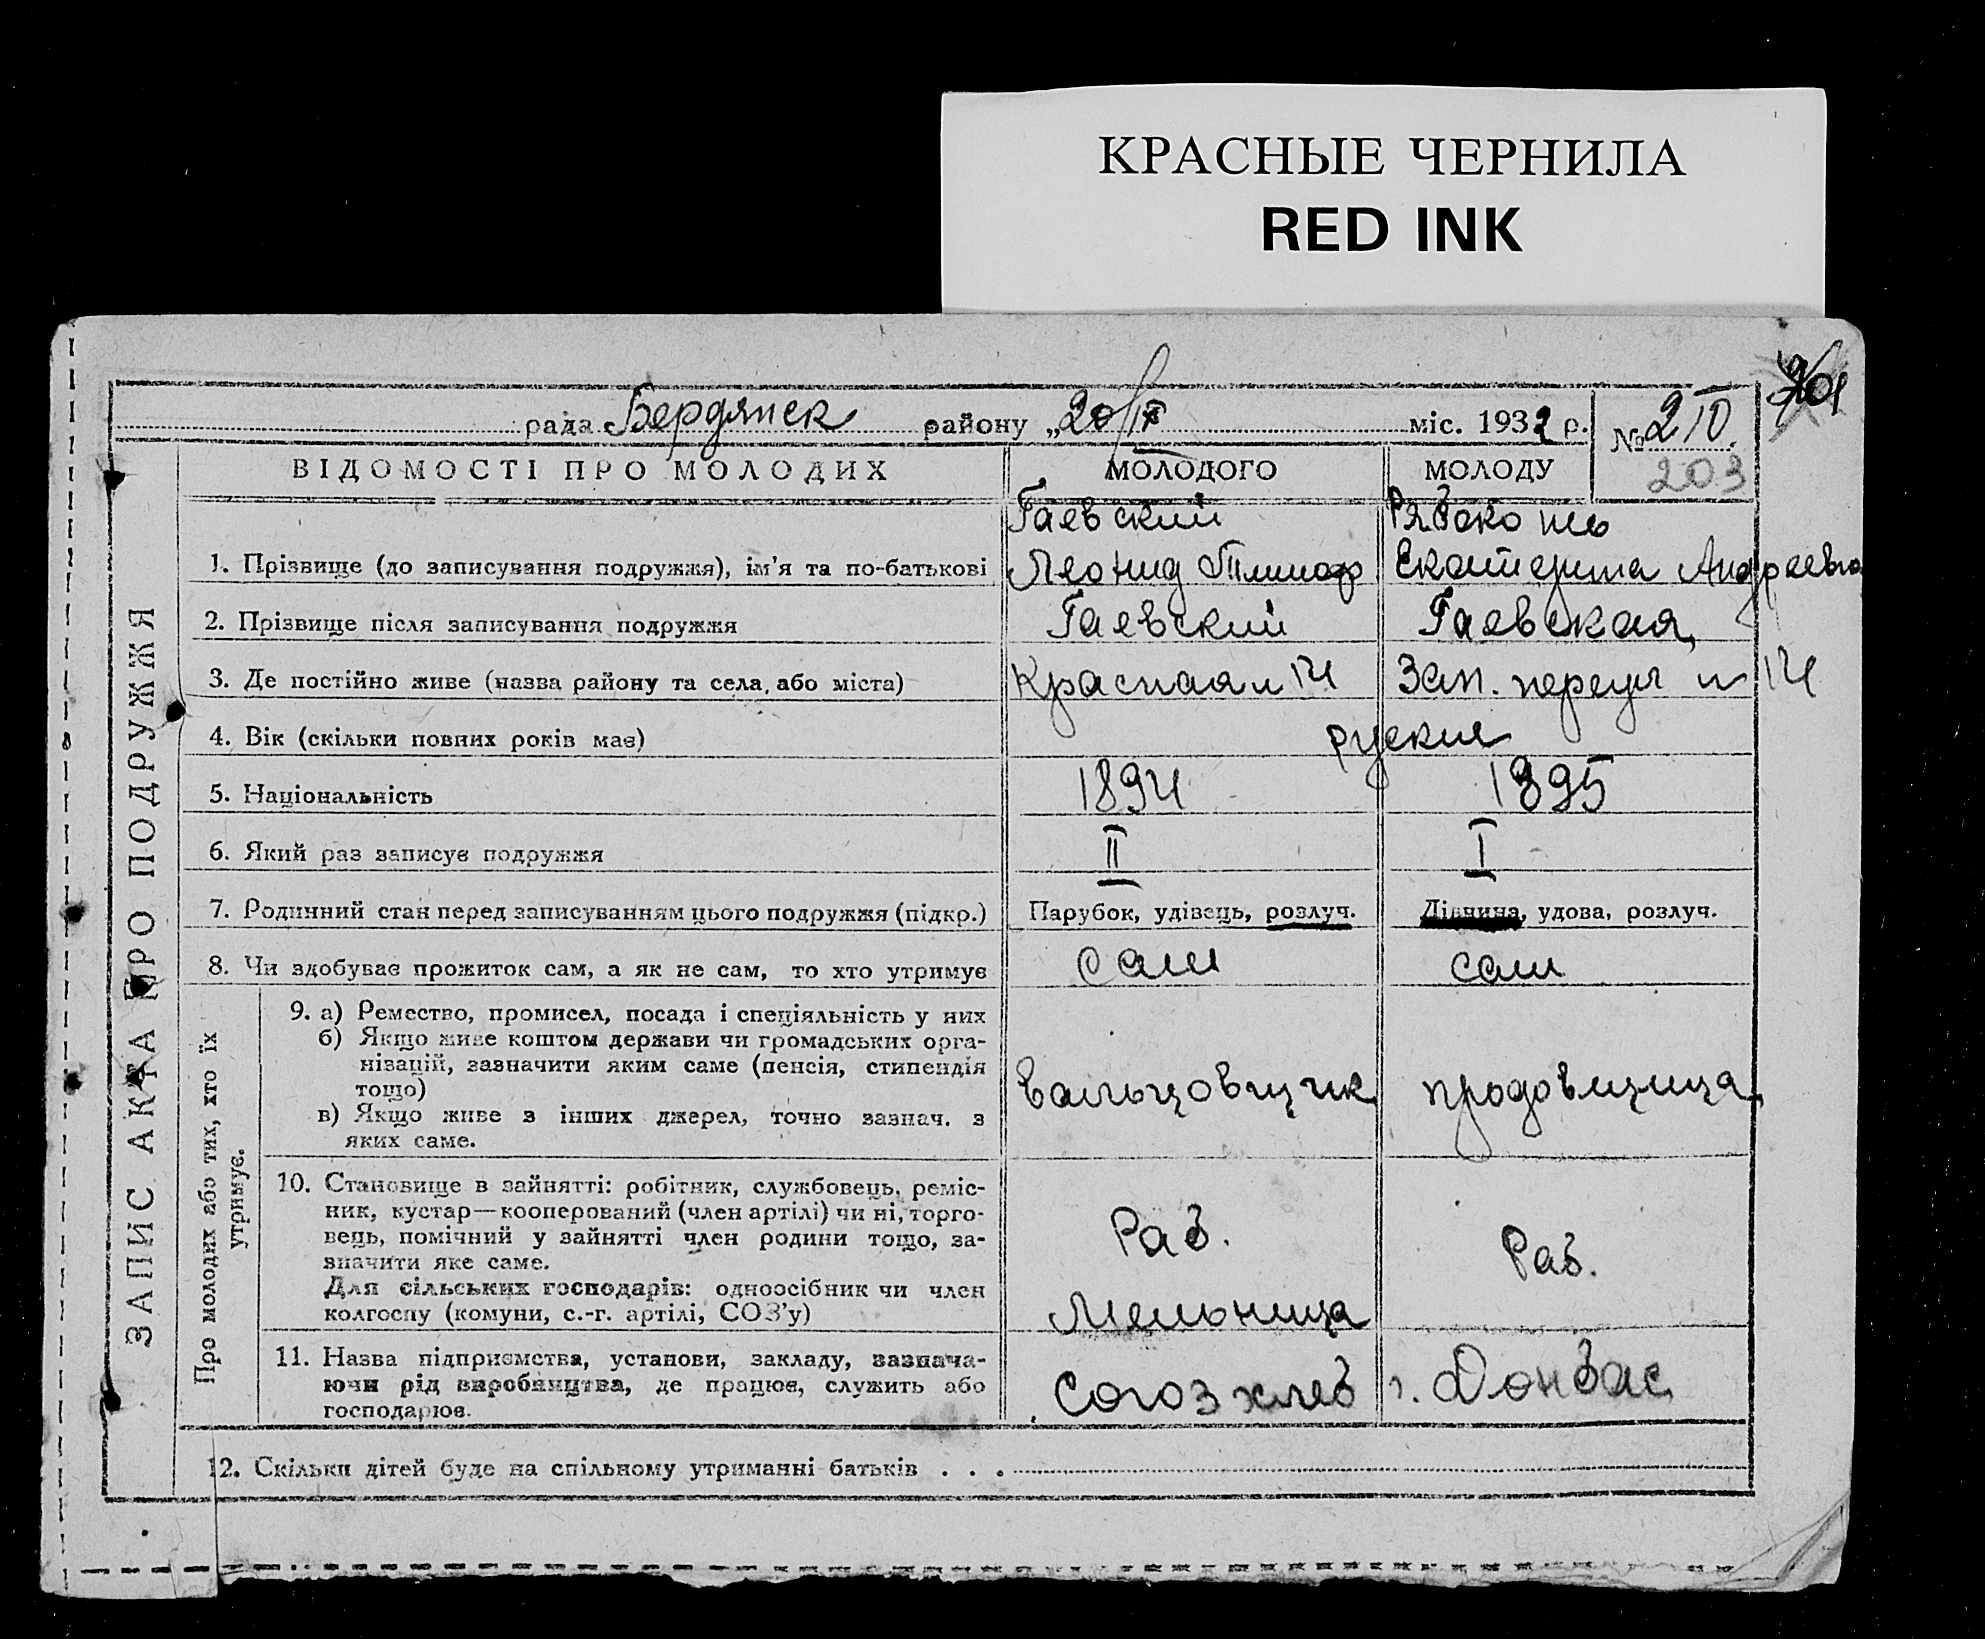 КРАСНЫЕ ЧЕРНИЛА
RED INK
рада Бердянск району „20/IX міс. 1932 р. № 210
203
ВІДОМОСТІ ПРО МОЛОДИХ МОЛОДОГО МОЛОДУ
Гаевский Рябоконь
1. Прізвище (до записування подружжя), ім'я та по-батькові Леонид Тимоф Екатерина Андреевна
2. Прізвище після записування подружжя Гаевский Гаевская
3. Де постійно живе (назва району та села, або міста) Красная 14 Зап. переул 14
4. Вік (скільки повних років має) руские
5. Національність 1894 1895
6. Який раз записує подружжя II I
7. Родинний стан перед записуванням цього подружжя (підкр.) Парубок, удівець, розлуч. Дівчина, удова, розлуч.
8. Чи здобуває прожиток сам, а як не сам, то хто утримує сам сам
ЗАПИС АКТА ПРО ПОДРУЖЖЯ
Про молодих або тих, хто їх
утримує.
9. а) Ремество, промисел, посада і спеціяльність у них
б) Якщо живе коштом держави чи громадських орга-
нізацій, зазначити яким саме (пенсія, стипендія
тощо)
в) Якщо живе з інших джерел, точно зазнач. з
яких саме.
вальцовщик продовщица
10. Становище в зайнятті: робітник, службовець, реміс-
ник, кустар—кооперований (член артілі) чи ні, торго-
вець, помічний у зайнятті член родини тощо, за-
значити яке саме.
Для сільських господарів: одноосібник чи член
колгоспу (комуни, с.-г. артілі, СОЗ'у)
Раб. Раб.
Мельница
11. Назва підприємства, установи, закладу, зазнача-
ючи рід виробництва, де працює, служить або
господарює.
Союзхлеб г. Донбас
12. Скільки дітей буде на спільному утриманні батьків . . .